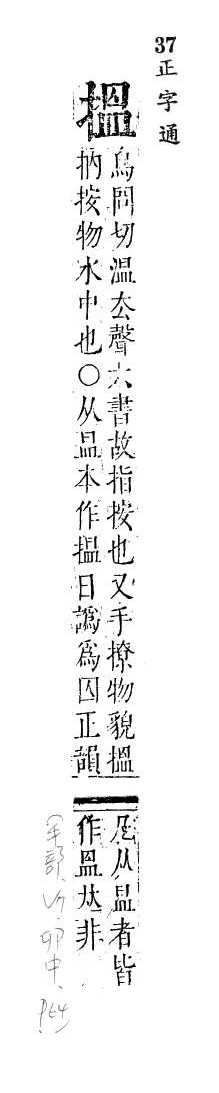 37 正字通
搵
烏問切溫厺聲六書故指按也又手撩物貌搵
抐按物水中也○从昷本作揾日譌爲囚正韻
凡从昷者皆
作𥁕𠀤非
手部
卯中
P64